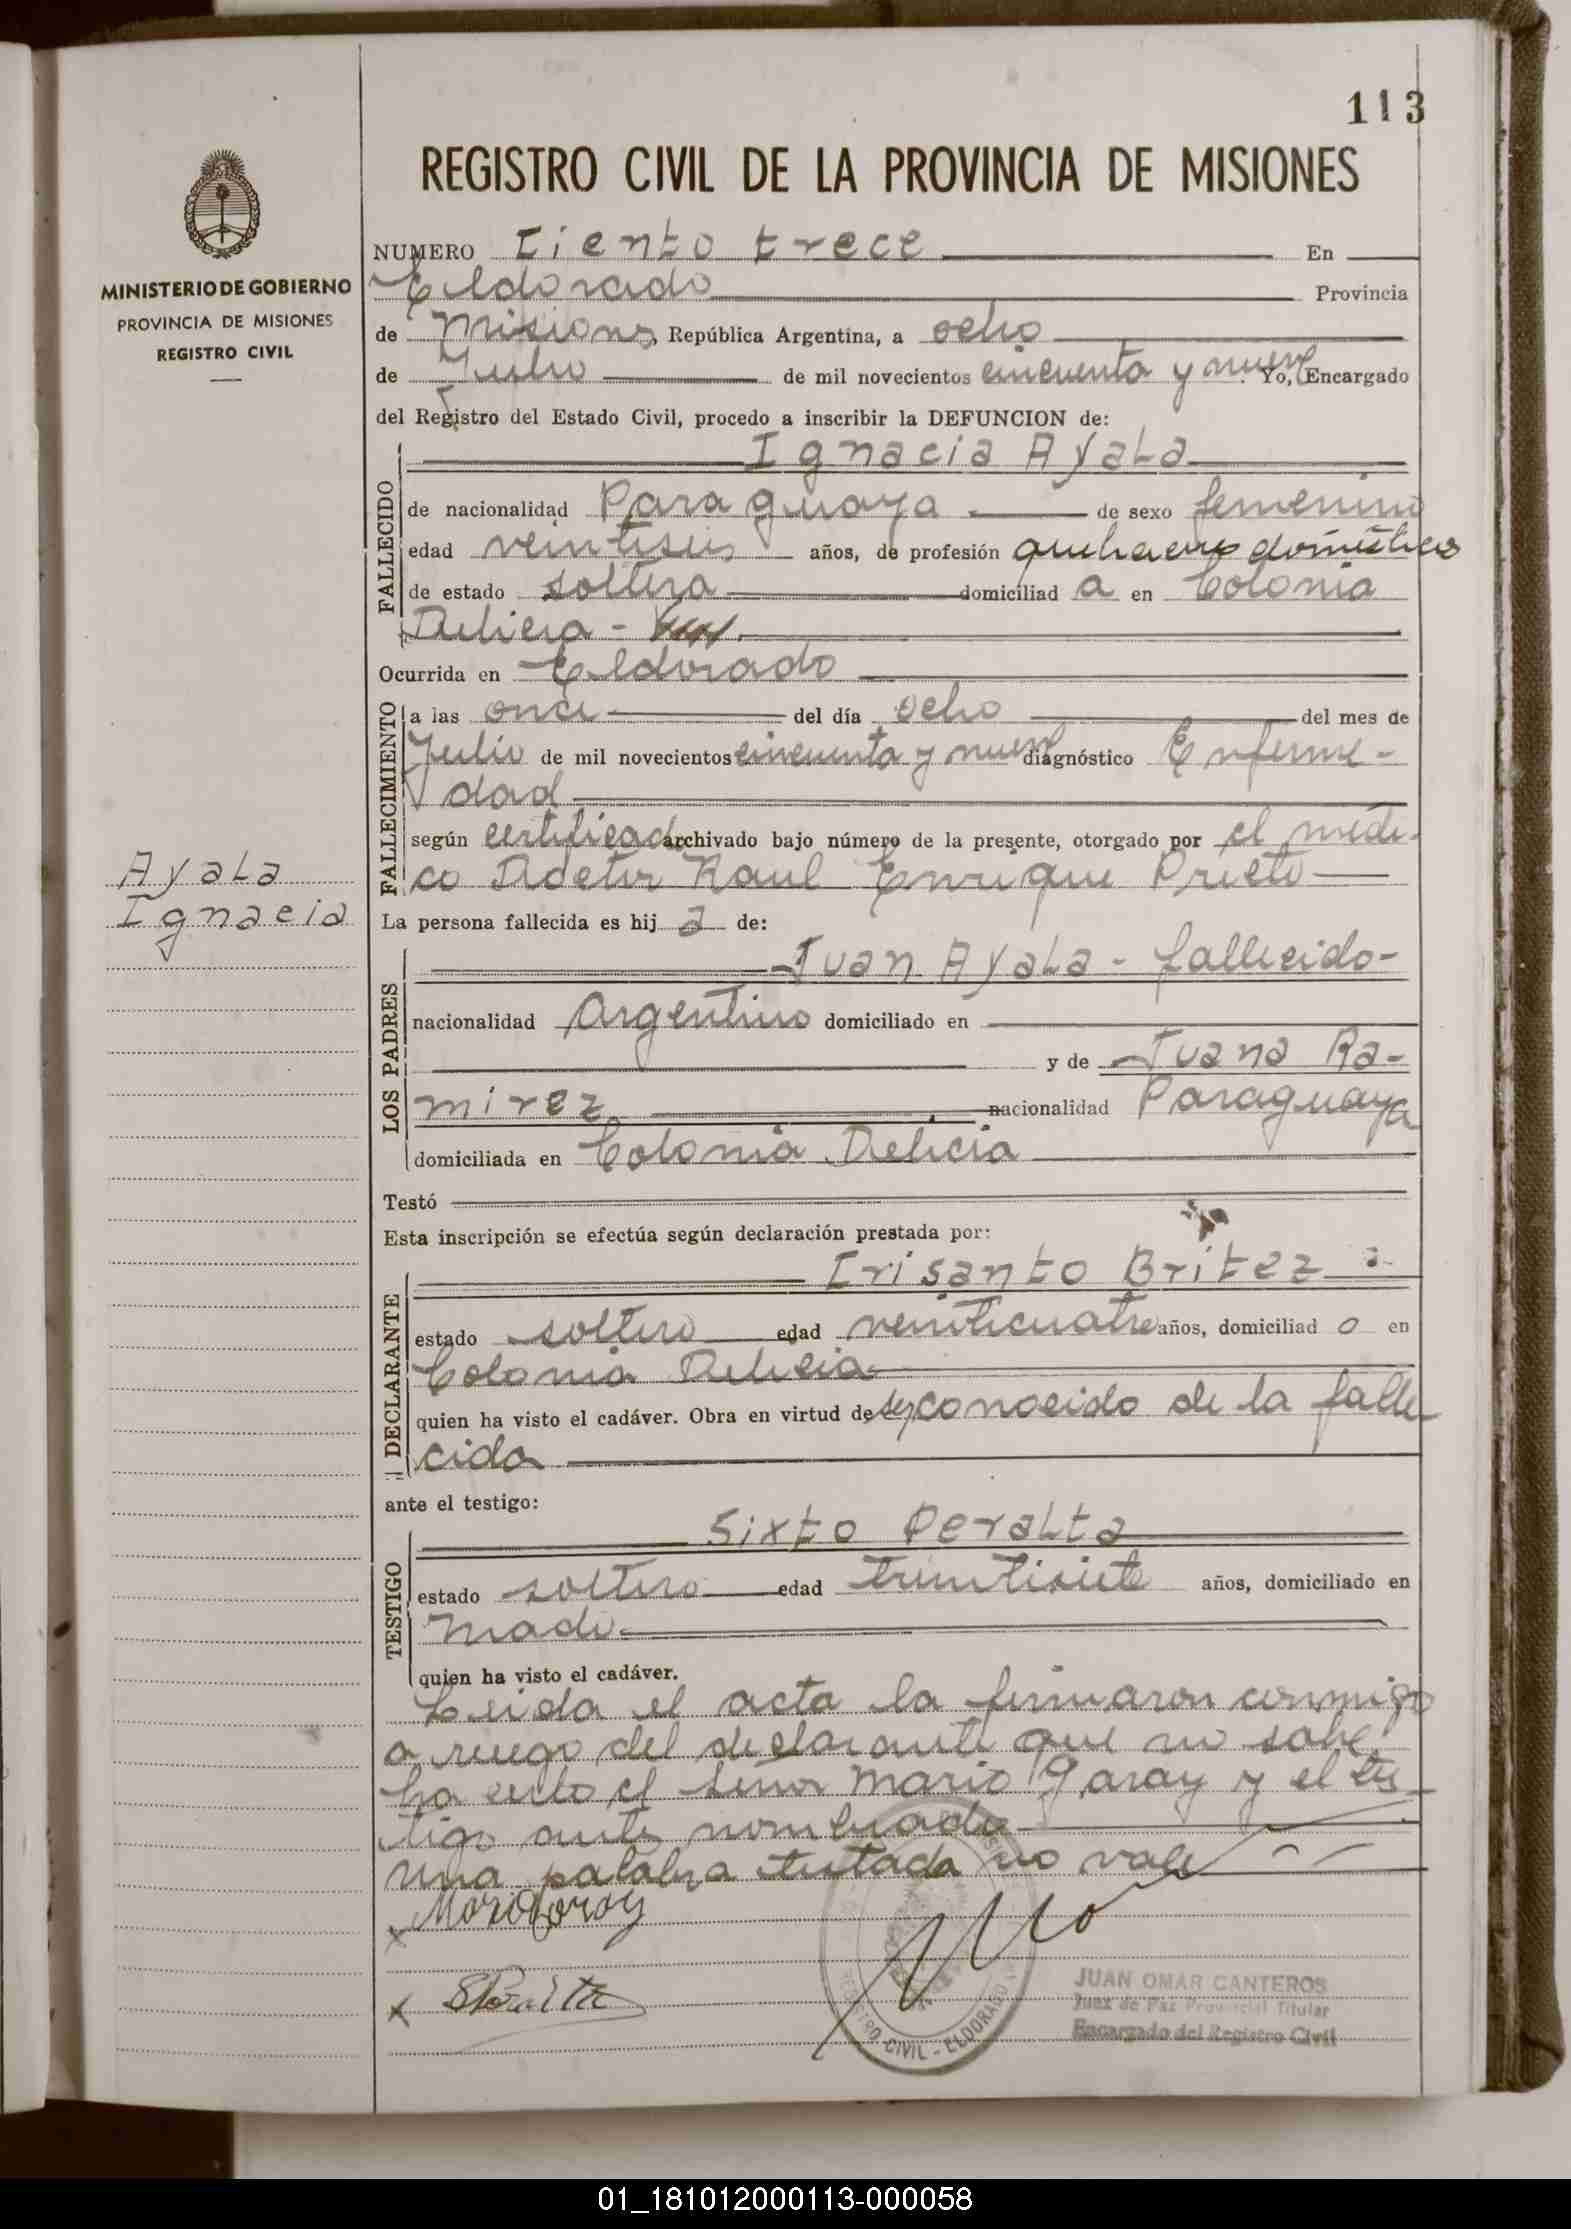 113
REGISTRO CIVIL DE LA PROVINCIA DE MISIONES
MINISTERIO DE GOBIERNO
PROVINCIA DE MISIONES
REGISTRO CIVIL
NUMERO Ciento trece En
Eldorado Provincia
de Misiones, República Argentina, a ocho
de Julio de mil novecientos cincuenta y nueve Yo, Encargado
del Registro del Estado Civil, procedo a inscribir la DEFUNCION de:
Ignacia Ayala
FALLECIDO
de nacionalidad Paraguaya de sexo femenino
edad veintiseis años, de profesión quehaceres domésticos
de estado soltera domiciliad a en Colonia
Delicia -
Ocurrida en Eldorado
FALLECIMIENTO
a las once del día ocho del mes de
Julio de mil novecientos cincuenta y nueve diagnóstico Enferme-
dad
según certificado archivado bajo número de la presente, otorgado por el médi-
co Doctor Raul Enrique Prieto
Ayala
Ignacia
La persona fallecida es hij a de:
LOS PADRES
Juan Ayala - fallecido-
nacionalidad Argentino domiciliado en
y de Juana Ra-
mirez nacionalidad Paraguaya
domiciliada en Colonia Delicia
Testó
Esta inscripción se efectúa según declaración prestada por:
DECLARANTE
Crisanto Britez
estado soltero edad veinticuatro años, domiciliad o en
Colonia Delicia
quien ha visto el cadáver. Obra en virtud de ser conocido de la falle-
cida
ante el testigo:
TESTIGO
Sixto Peralta
estado soltero edad treintisiete años, domiciliado en
Mado
quien ha visto el cadáver.
Leida el acta la firmaron conmigo
a ruego del declarante que no sabe
hacerlo el señor Mario Garay y el tes-
tigo antes nombrado
Una palabra testada no vale
x Mario Garay
x S Peralta
REGISTRO CIVIL - ELDORADO
JUAN OMAR CANTEROS
Juez de Paz Provincial Titular
Encargado del Registro Civil
01_181012000113-000058